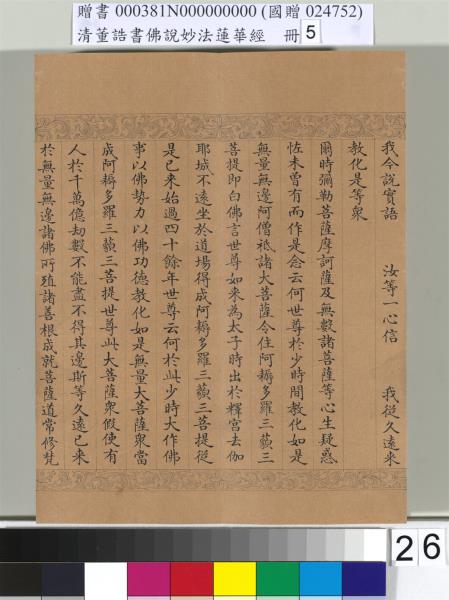 贈書 000381N000000000 (國贈 024752)
清董誥書佛說妙法蓮華經 冊 5
我今說實語 汝等一心信 我從久遠來
教化是等眾
爾時彌勒菩薩摩訶薩及無數諸菩薩等心生疑惑
怪未曾有而作是念云何世尊於少時間教化如是
無量無邊阿僧祇諸大菩薩令住阿耨多羅三藐三
菩提即白佛言世尊如來為太子時出於釋宮去伽
耶城不遠坐於道場得成阿耨多羅三藐三菩提從
是已來始過四十餘年世尊云何於此少時大作佛
事以佛勢力以佛功德教化如是無量大菩薩眾當
成阿耨多羅三藐三菩提世尊此大菩薩眾假使有
人於千萬億劫數不能盡不得其邊斯等久遠已來
於無量無邊諸佛所殖諸善根成就菩薩道常修梵
26